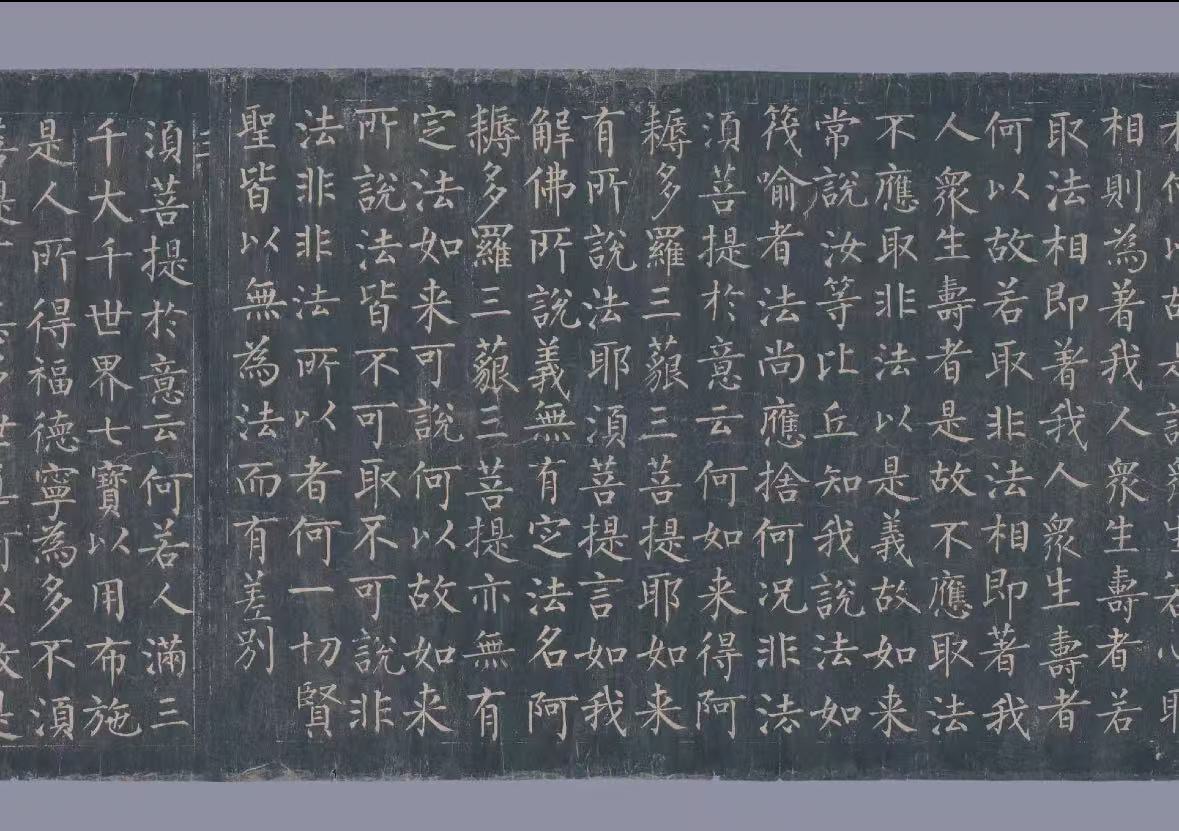 何以故是諸衆生若心取
相則為著我人衆生壽者若
取法相即著我人衆生壽者
何以故若取非法相即著我
人衆生壽者是故不應取法
不應取非法以是義故如来
常說汝等比丘知我說法如
筏喻者法尚應捨何况非法
湏菩提於意云何如来得阿
耨多羅三藐三菩提耶如来
有所說法耶湏菩提言如我
解佛所說義無有定法名阿
耨多羅三藐三菩提亦無有
定法如来可說何以故如来
所說法皆不可取不可說非
法非非法所以者何一切賢
聖皆以無為法而有差別
湏菩提於意云何若人滿三
千大千世界七寶以用布施
是人所得福德寧為多不湏
菩提多世何以故是